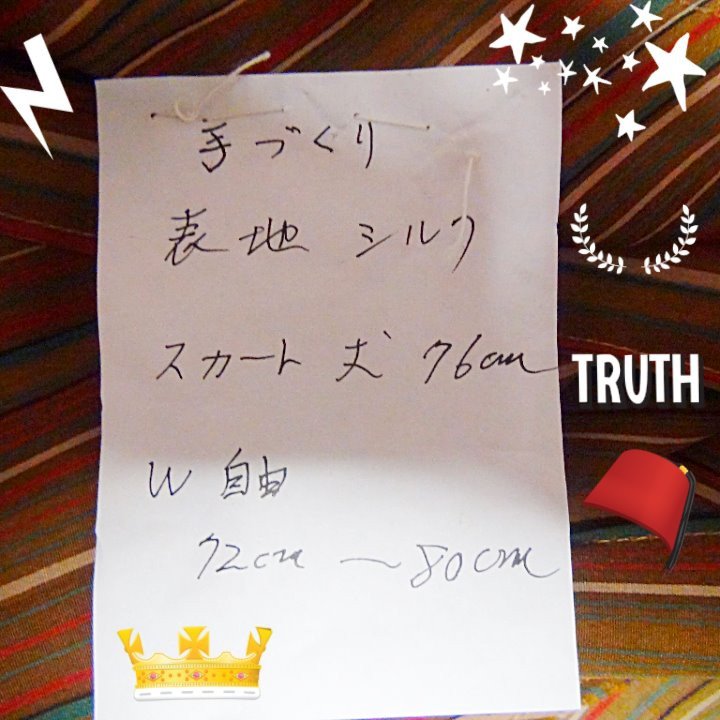 手づくり
表地 シルク
スカート 丈 76cm
TRUTH
W 自由
72cm 〜 80cm